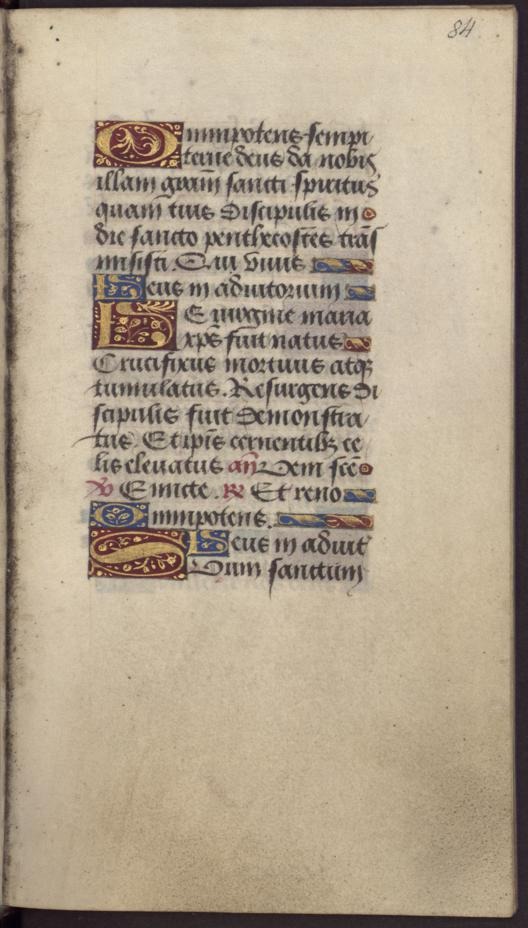 84
Omnipotens sempi
terne deus da nobis
illam gram̄ sancti spiritus
quam̄ tuis discipulis in
die sancto penthecostes trās
misisti. Qui viuis
Deus in adiutorium
De virgine maria
xp̄s fuit natus
Crucifixus mortuus atqꝫ
tumulatus. Resurgens di
scipulis fuit demonstra
tus. Et ip̄is cernentibꝫ ce
lis eleuatus an̄ Veni sc̄e
℣ Emitte. ℟ Et reno
Omnipotens.
Deus in adiut
Suum sanctum